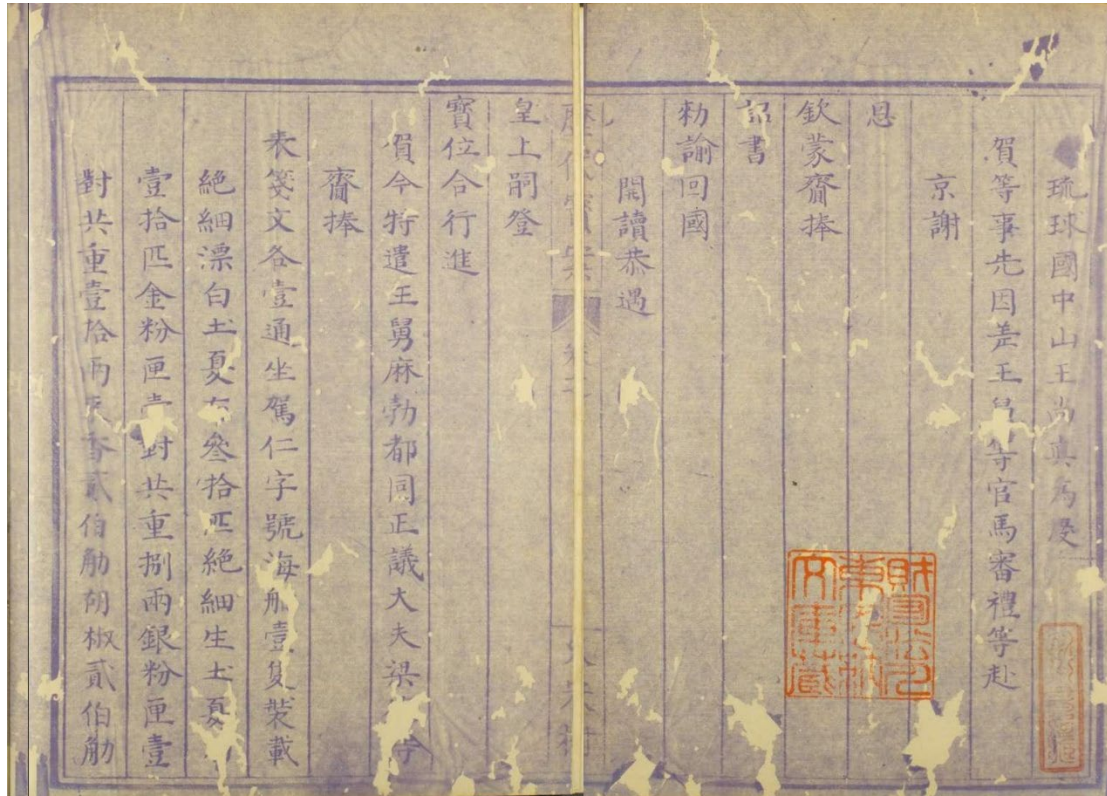 琉球國中山王尚真為慶
賀等事先因差王舅等官馬審禮等赴
京謝
恩
欽蒙齎捧
詔書
勑諭回國
開讀恭遇
歷代寶案
皇上嗣登
寶位合行進
賀今特遣王舅麻勃都同正議大夫梁
齎捧
表箋文各壹通坐駕仁字號海船壹隻裝載
絶細漂白土夏布叁拾匹絶細生土夏
壹拾匹金粉匣壹對共重捌兩銀粉匣壹
對共重壹拾兩 香貳伯觔胡椒貳伯觔